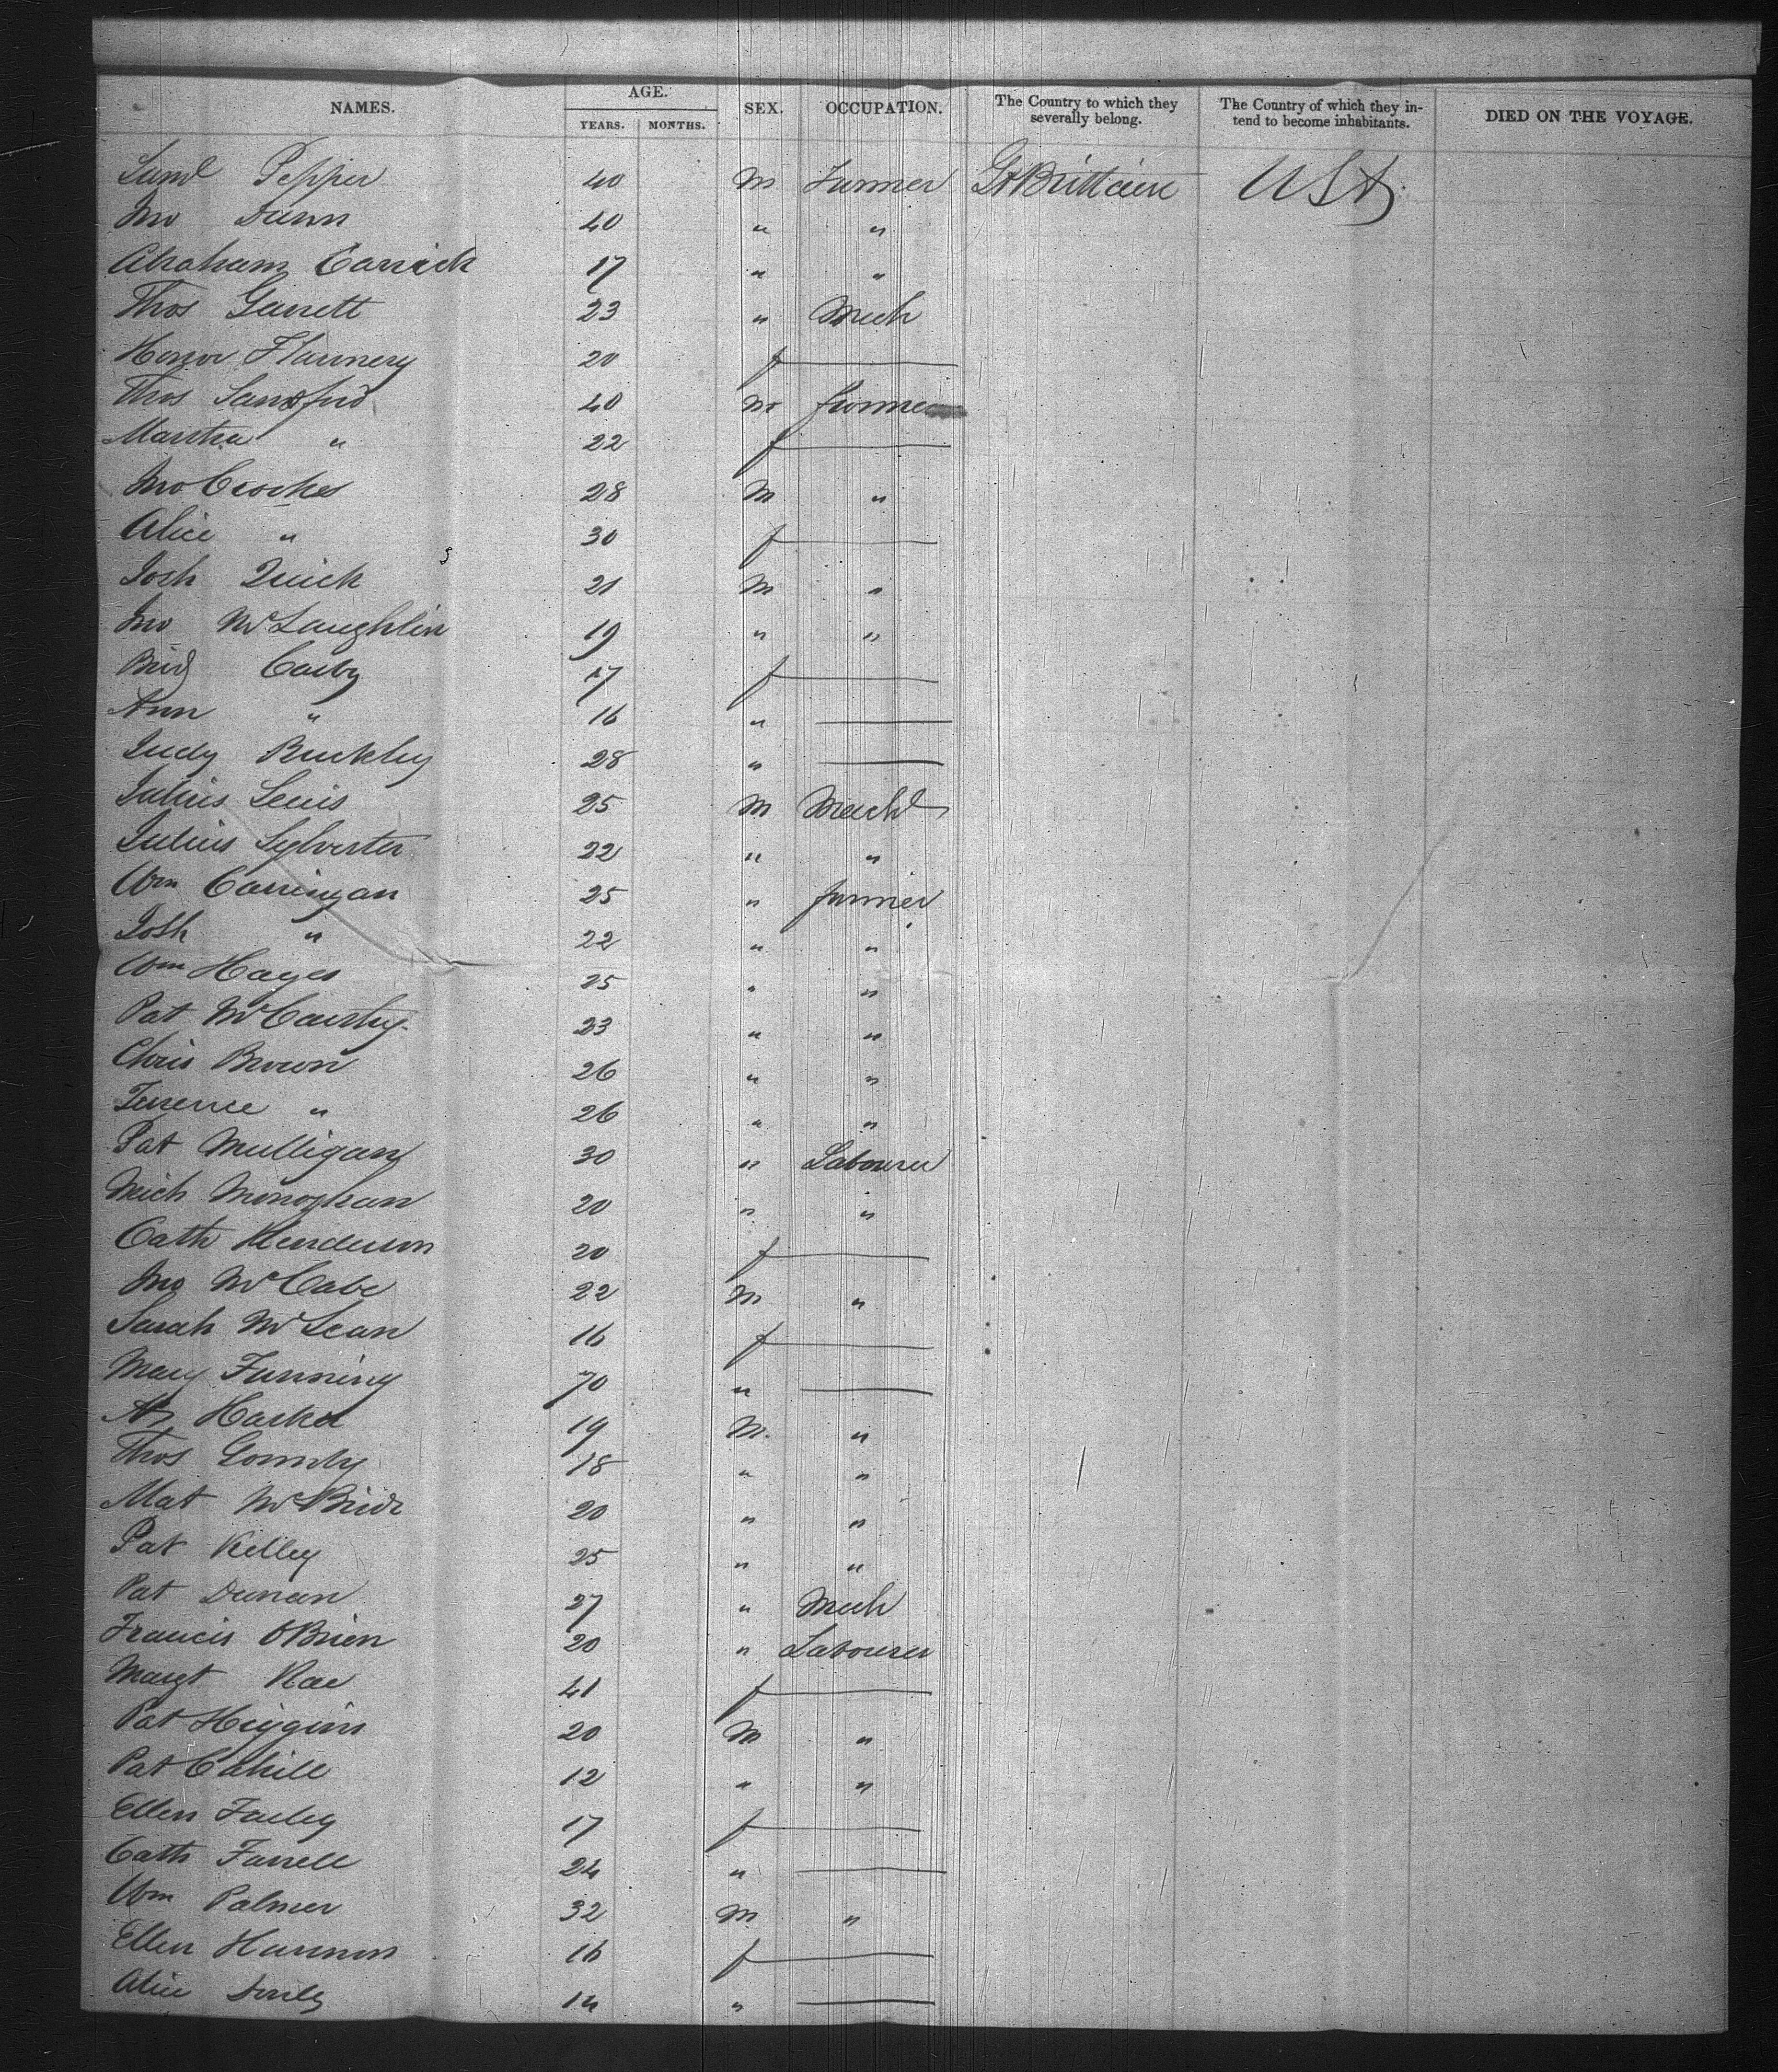 NAMES. AGE. YEARS. MONTHS. SEX. OCCUPATION. The Country to which they severally belong. The Country of which they intend to become inhabitants. DIED ON THE VOYAGE.
Saml Pepper 40 m Farmer Gt Brittain USA
Jno Dunn 40 " "
Abraham Carrick 17 " "
Thos Garrett 23 " Mech
Honor Flannery 20 f
Thos 40 m farmer
Martha " 22 f
Jno Crookes 28 M "
Alice " 30 f
Josh Quick 21 M "
Jno McLaughlin 19 " "
Brid 17 f
Ann " 16 "
Judy Buckley 28 "
Julius Lewis 25 M
Julius Sylvester 22 " "
Wm Carrigan 25 " farmer
Josh " 22 " "
Wm Hayes 25 " "
Pat McCarthy 23 " "
Chris Brown 26 " "
Terrence " 26 " "
Pat Mulligan 30 " Labourer
Mich Monoghan 20 " "
Cath Henderson 20 f
Jno McCabe 22 M "
Sarah McLean 16 f
Mary Fanning 70 "
19 M. "
Thos 18 " "
Mat McBride 20 " "
Pat Kelley 25 " "
Pat Duncan 27 " Mech
Francis OBrien 20 " Labourer
Margt Rae 41 f
Pat Higgins 20 M "
Pat Cahill 12 " "
Ellen Farley 17 f
Cath Farrell 24 "
Wm Palmer 32 M "
Ellen 16 f
Alice "